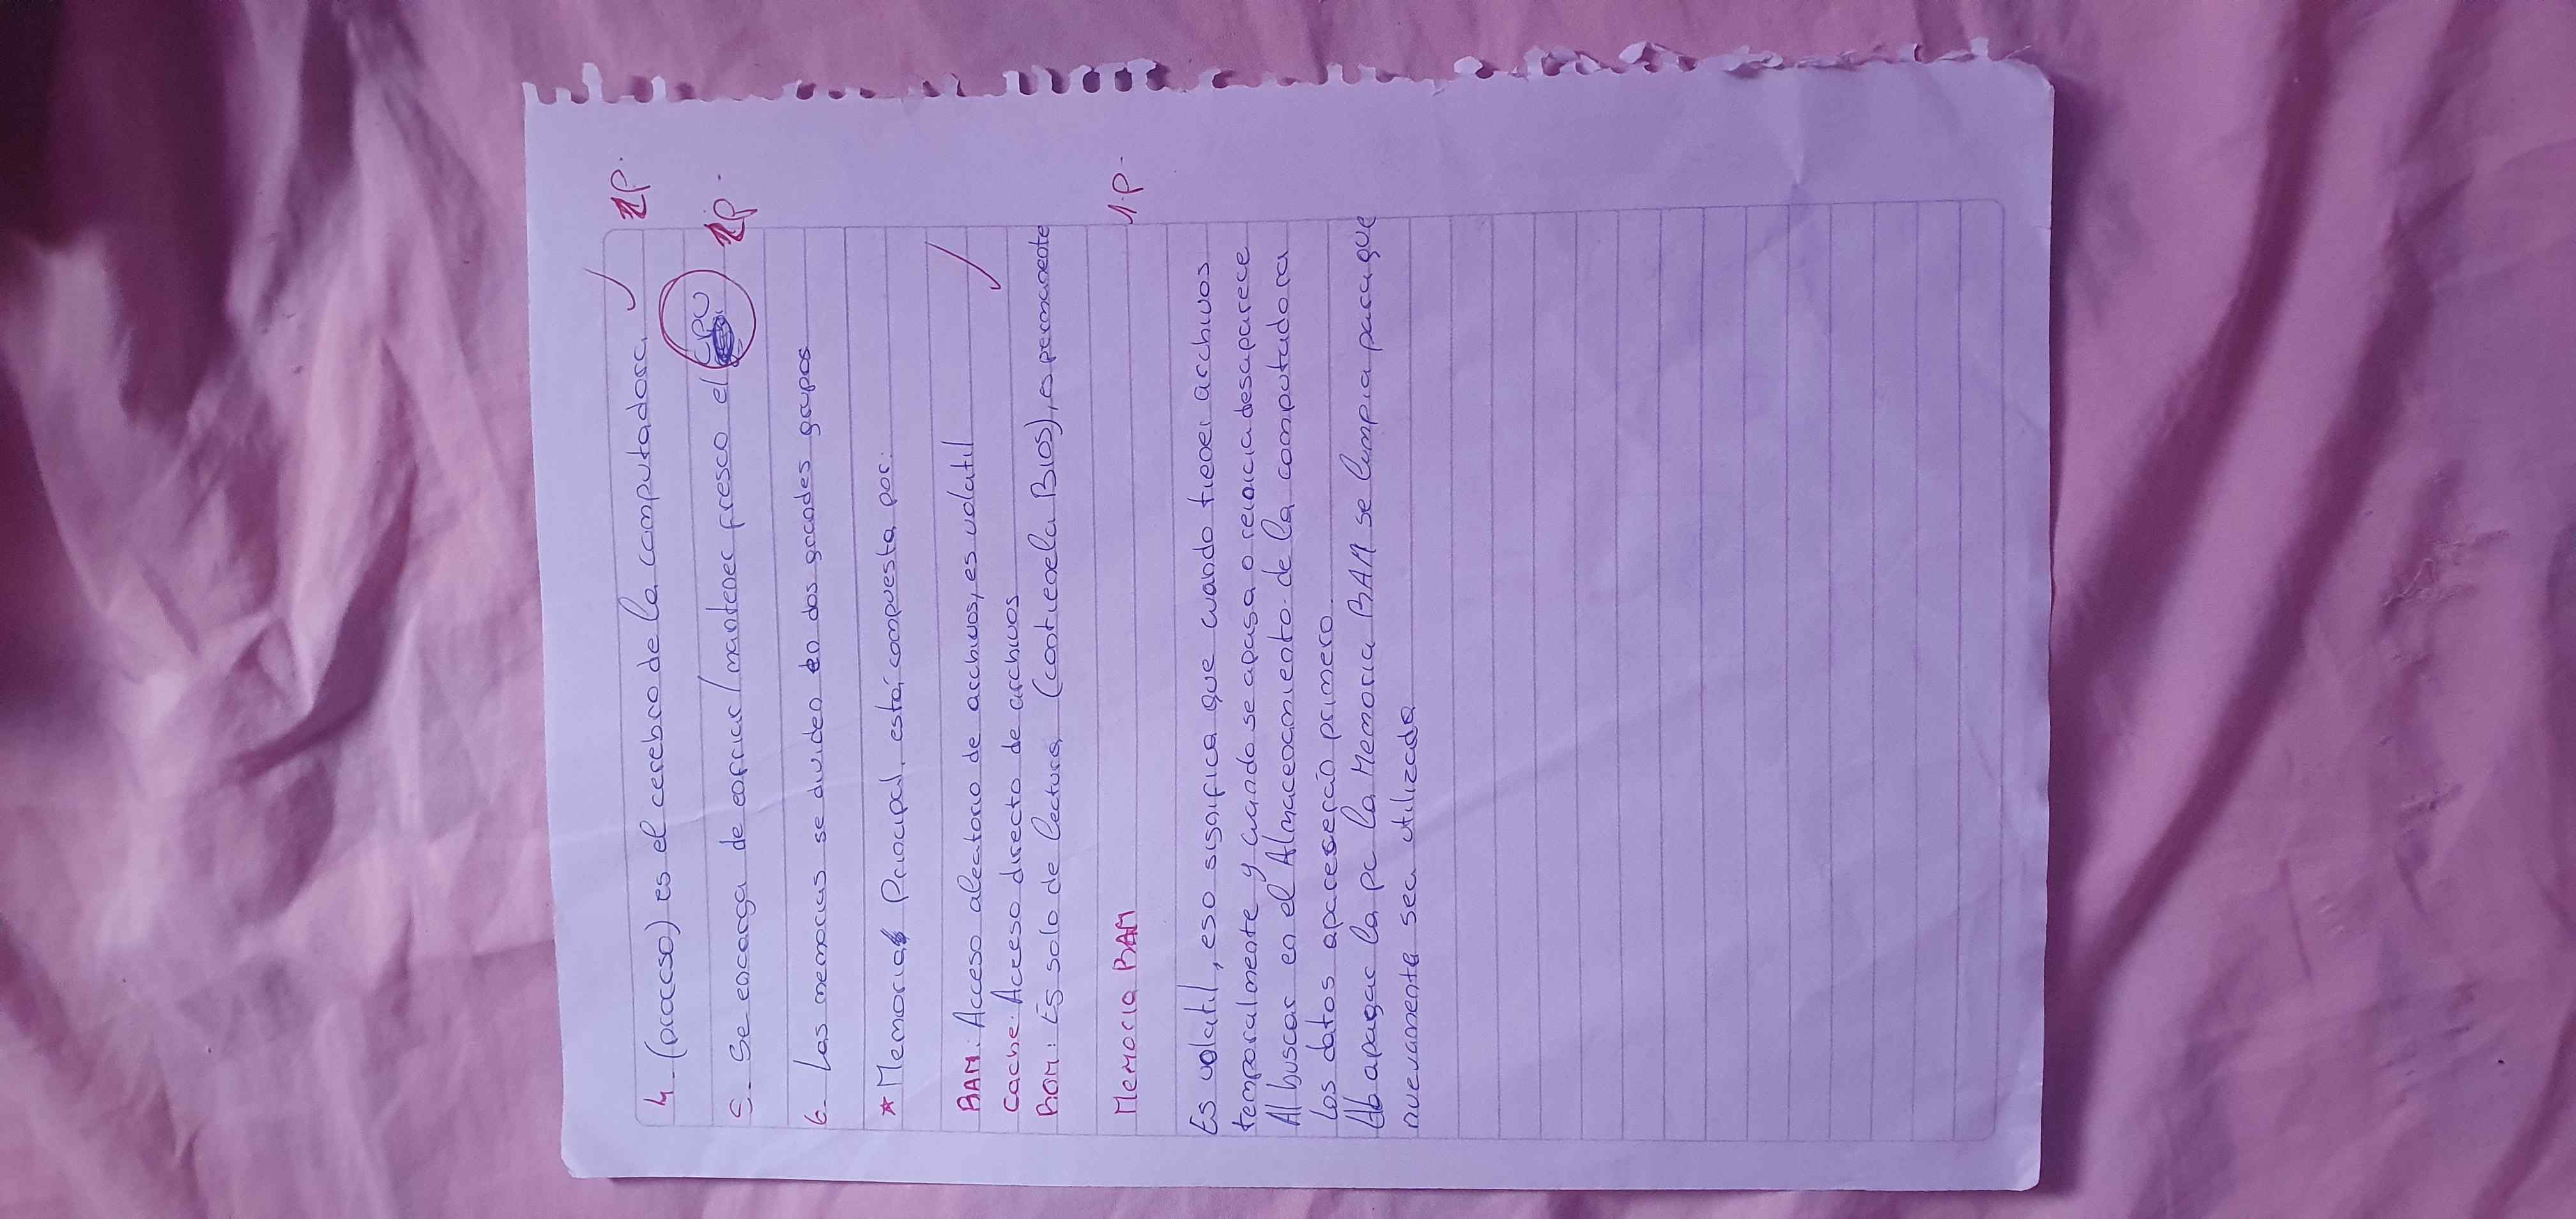 4- (proceso) es el cerebro de la computadora 1p.
5- Se encarga de enfriar/mantener fresco el CPU 1p.
6- Las memorias se dividen en dos grandes grupos
* Memoria Principal, está compuesta por:
RAM: Acceso aleatorio de archivos, es volatil
Cache: Acceso directo de archivos
ROM: Es solo de lectura, (contiene la BIOS), es permanente
Memoria RAM 1.p.
Es volatil, eso significa que cuando tienen archivos
temporalmente y cuando se apaga o reinicia desaparece
Al buscar en el Almacenamiento de la computadora
Los datos aparecerán primero.
apagar la pc la Memoria RAM se limpia para que
nuevamente sea utilizada